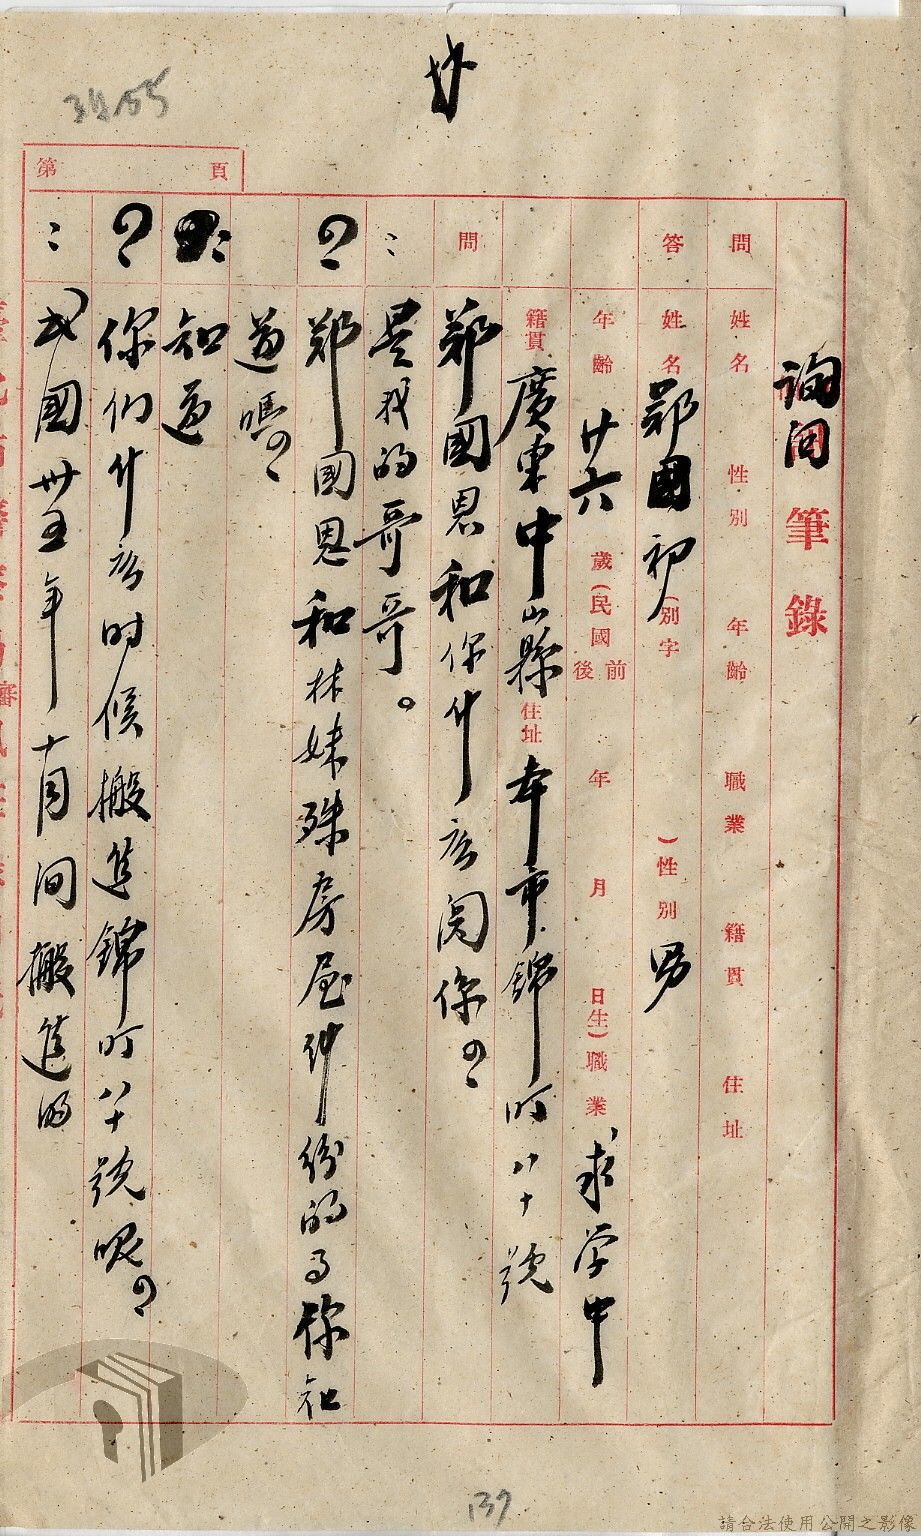 廿
3455
詢問筆錄
問 姓名 性別 年齡 職業 籍貫 住址
答 姓名 鄭國初 (別字 ) 性別 男
年齡 廿六 歲(民國 前後 年 月 日生) 職業 求学中
籍貫 廣東中山縣 住址 本市錦町八十號
問 鄭國恩和你什么関係?
: 是我的哥哥。
? 鄭國恩和林妹殊房屋糾份的事你知
道嗎?
: 知道
? 你们什么时候搬進錦町八十號呢?
: 民國卅五年十月间搬進的
第 頁
139
請合法使用公開之影像